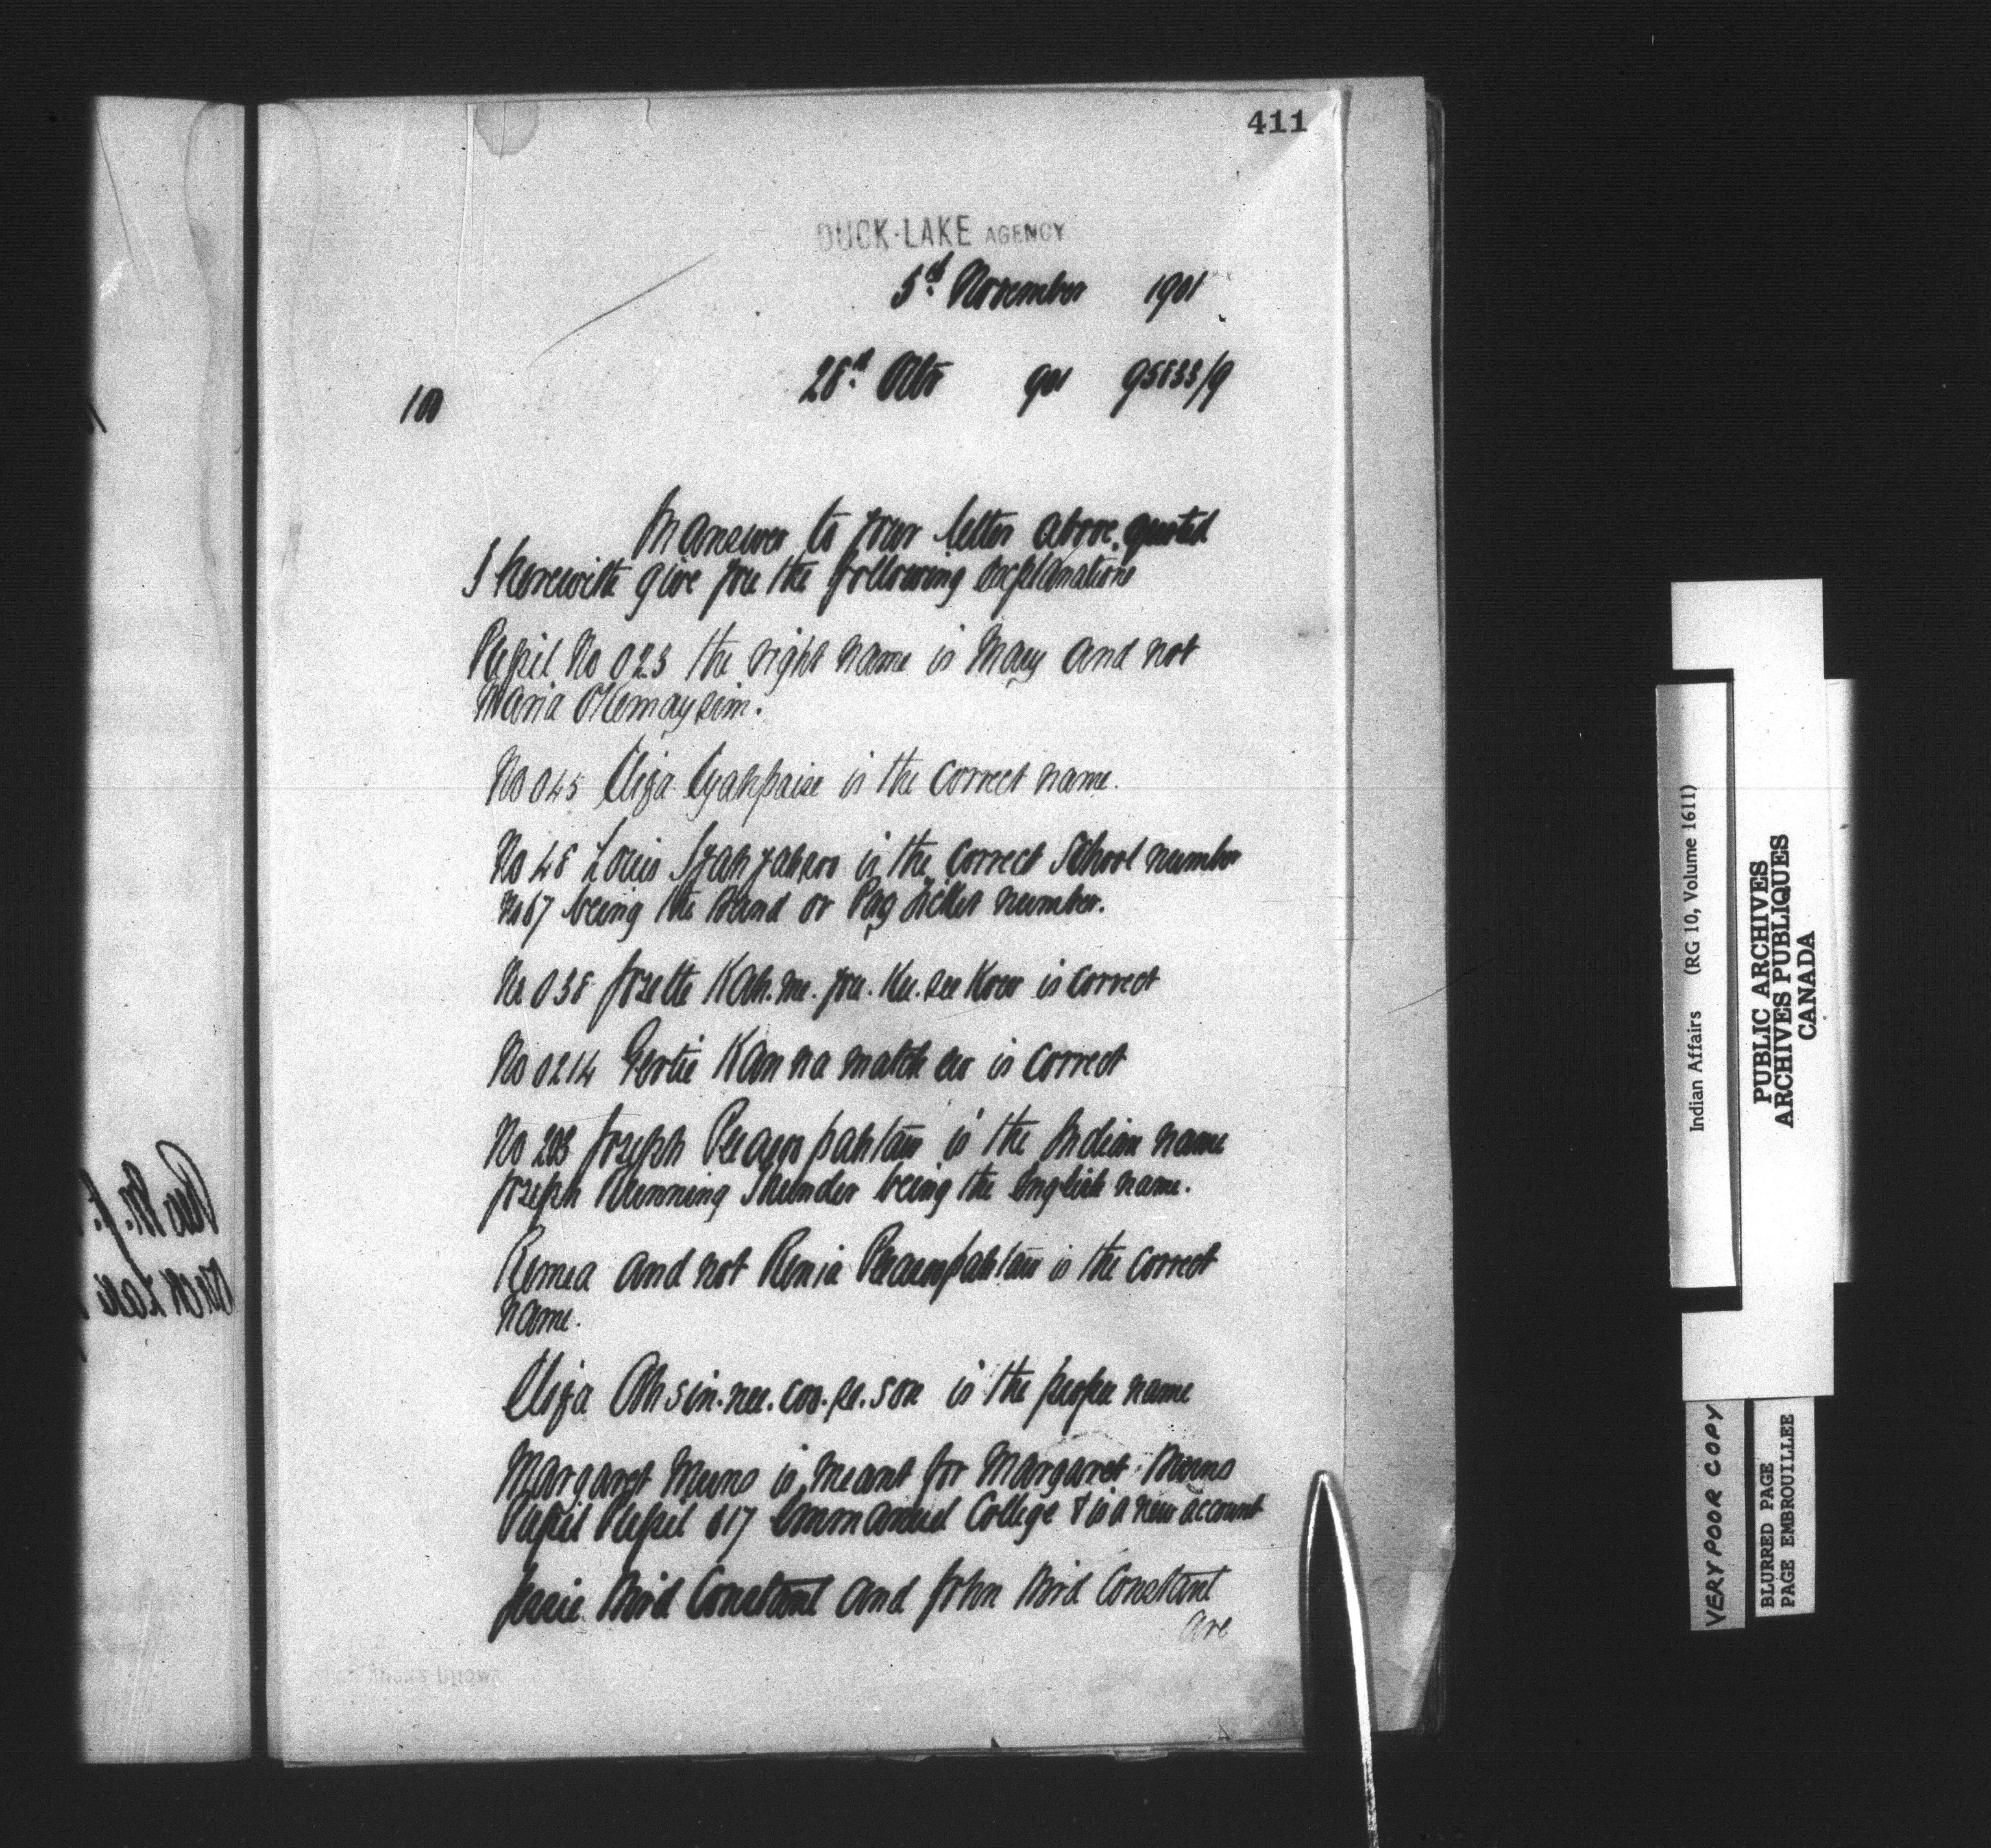 411
DUCK-LAKE AGENCY
5th November 1901
28th Octr 901 95833/9
100
In answer to your letter above quoted
I herewith give you the following explanations
Pupil No 023 the right name is Mary and not
Maria Okemaysim.
No 045 Eliza Eyahpaise is the correct name.
No 48 Louis is the correct School number
No 67 being the Band or Pay ticket number.
No 038 Josette Kah.me.you.Ku.see Kow is correct
No 0214 Gertie Kan na match ew is correct
No 203 Joseph Peeawpahtaw is the Indian name
Joseph Running Thunder being the English name.
Remea and not Renia Peeawpahtaw is the correct
name.
Eliza Ah.sin.nee.cos.se.son is the proper name
Margaret Muns is meant for Margaret
Pupil Pupil 017 Emmanuel College & is a new account
Jessie Bird Constant and John Bird Constant
are
Indian Affairs (RG 10, Volume 1611)
PUBLIC ARCHIVES
ARCHIVES PUBLIQUES
CANADA
VERY POOR COPY
BLURRED PAGE
PAGE EMBROUILLEE